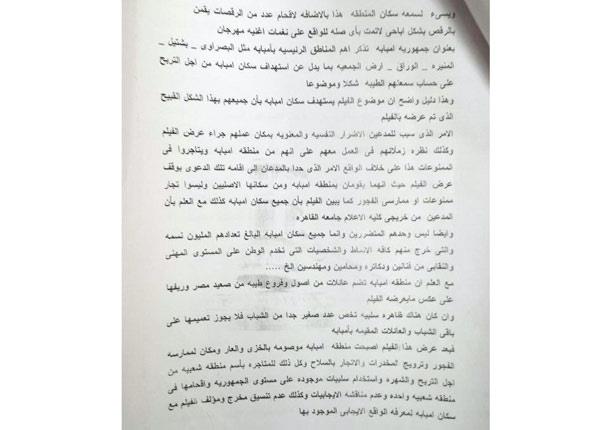 ويسىء لسمعه سكان المنطقه هذا بالاضافه لاقحام عدد من الرقصات يقمن
بالرقص بشكل اباحى لاتمت بأى صله للواقع على نغمات اغنيه مهرجان
بعنوان جمهوريه امبابه تذكر اهم المناطق الرئيسيه بأمبابه مثل البصراوى _ بشتيل _
المنيره _ الوراق _ ارض الجمعيه بما يدل عن استهداف سكان امبابه من اجل التربح
على حساب سمعتهم الطيبه شكلا وموضوعا
وهذا دليل واضح ان موضوع الفيلم يستهدف سكان امبابه بأن جميعهم بهذا الشكل القبيح
الذى تم عرضه بالفيلم
الامر الذى سبب للمدعين الاضرار النفسيه والمعنويه بمكان عملهم جراء عرض الفيلم
وكذلك نظره زملائهم فى العمل معهم على انهم من منطقه امبابه ويتاجروا فى
الممنوعات هذا على خلاف الواقع الامر الذى حدا بالمدعان الى اقامه تلك الدعوى بوقف
عرض الفيلم حيث انهما يقومان بمنطقه امبابه ومن سكانها الاصليين وليسوا تجار
ممنوعات او ممارسى الفجور كما يبين الفيلم بأن جميع سكان امبابه كذلك مع العلم بأن
المدعين من خريجى كليه الاعلام جامعه القاهره
وايضا ليس وحدهم المتضررين وانما جميع سكان امبابه البالغ تعدادهم المليون نسمه
والتى خرج منهم كافه الانماط والشخصيات التى تخدم الوطن على المستوى المهنى
والنقابى من فنانين ودكاتره ومحامين ومهندسين الخ .....
مع العلم ان منطقه امبابه تضم عائلات من اصول وفروع طيبه من صعيد مصر وريفها
على عكس مايعرضه الفيلم
وان كان هناك ظاهره سلبيه تخص عدد صغير جدا من الشباب فلا يجوز تعميمها على
باقى الشباب والعائلات المقيمه بأمبابه
فبعد عرض هذا الفيلم اصبحت منطقه امبابه موصومه بالخزى والعار ومكان لممارسه
الفجور وترويج المخدرات والاتجار بالسلاح وكل ذلك للمتاجره بأسم منطقه شعبيه من
اجل التربح والشهره واستخدام سلبيات موجوده على مستوى الجمهوريه واقحامها فى
منطقه شعبيه واحده وعدم مناقشه الايجابيات وكذلك عدم تنسيق مخرج ومؤلف الفيلم مع
سكان امبابه لمعرفه الواقع الايجابى الموجود بها